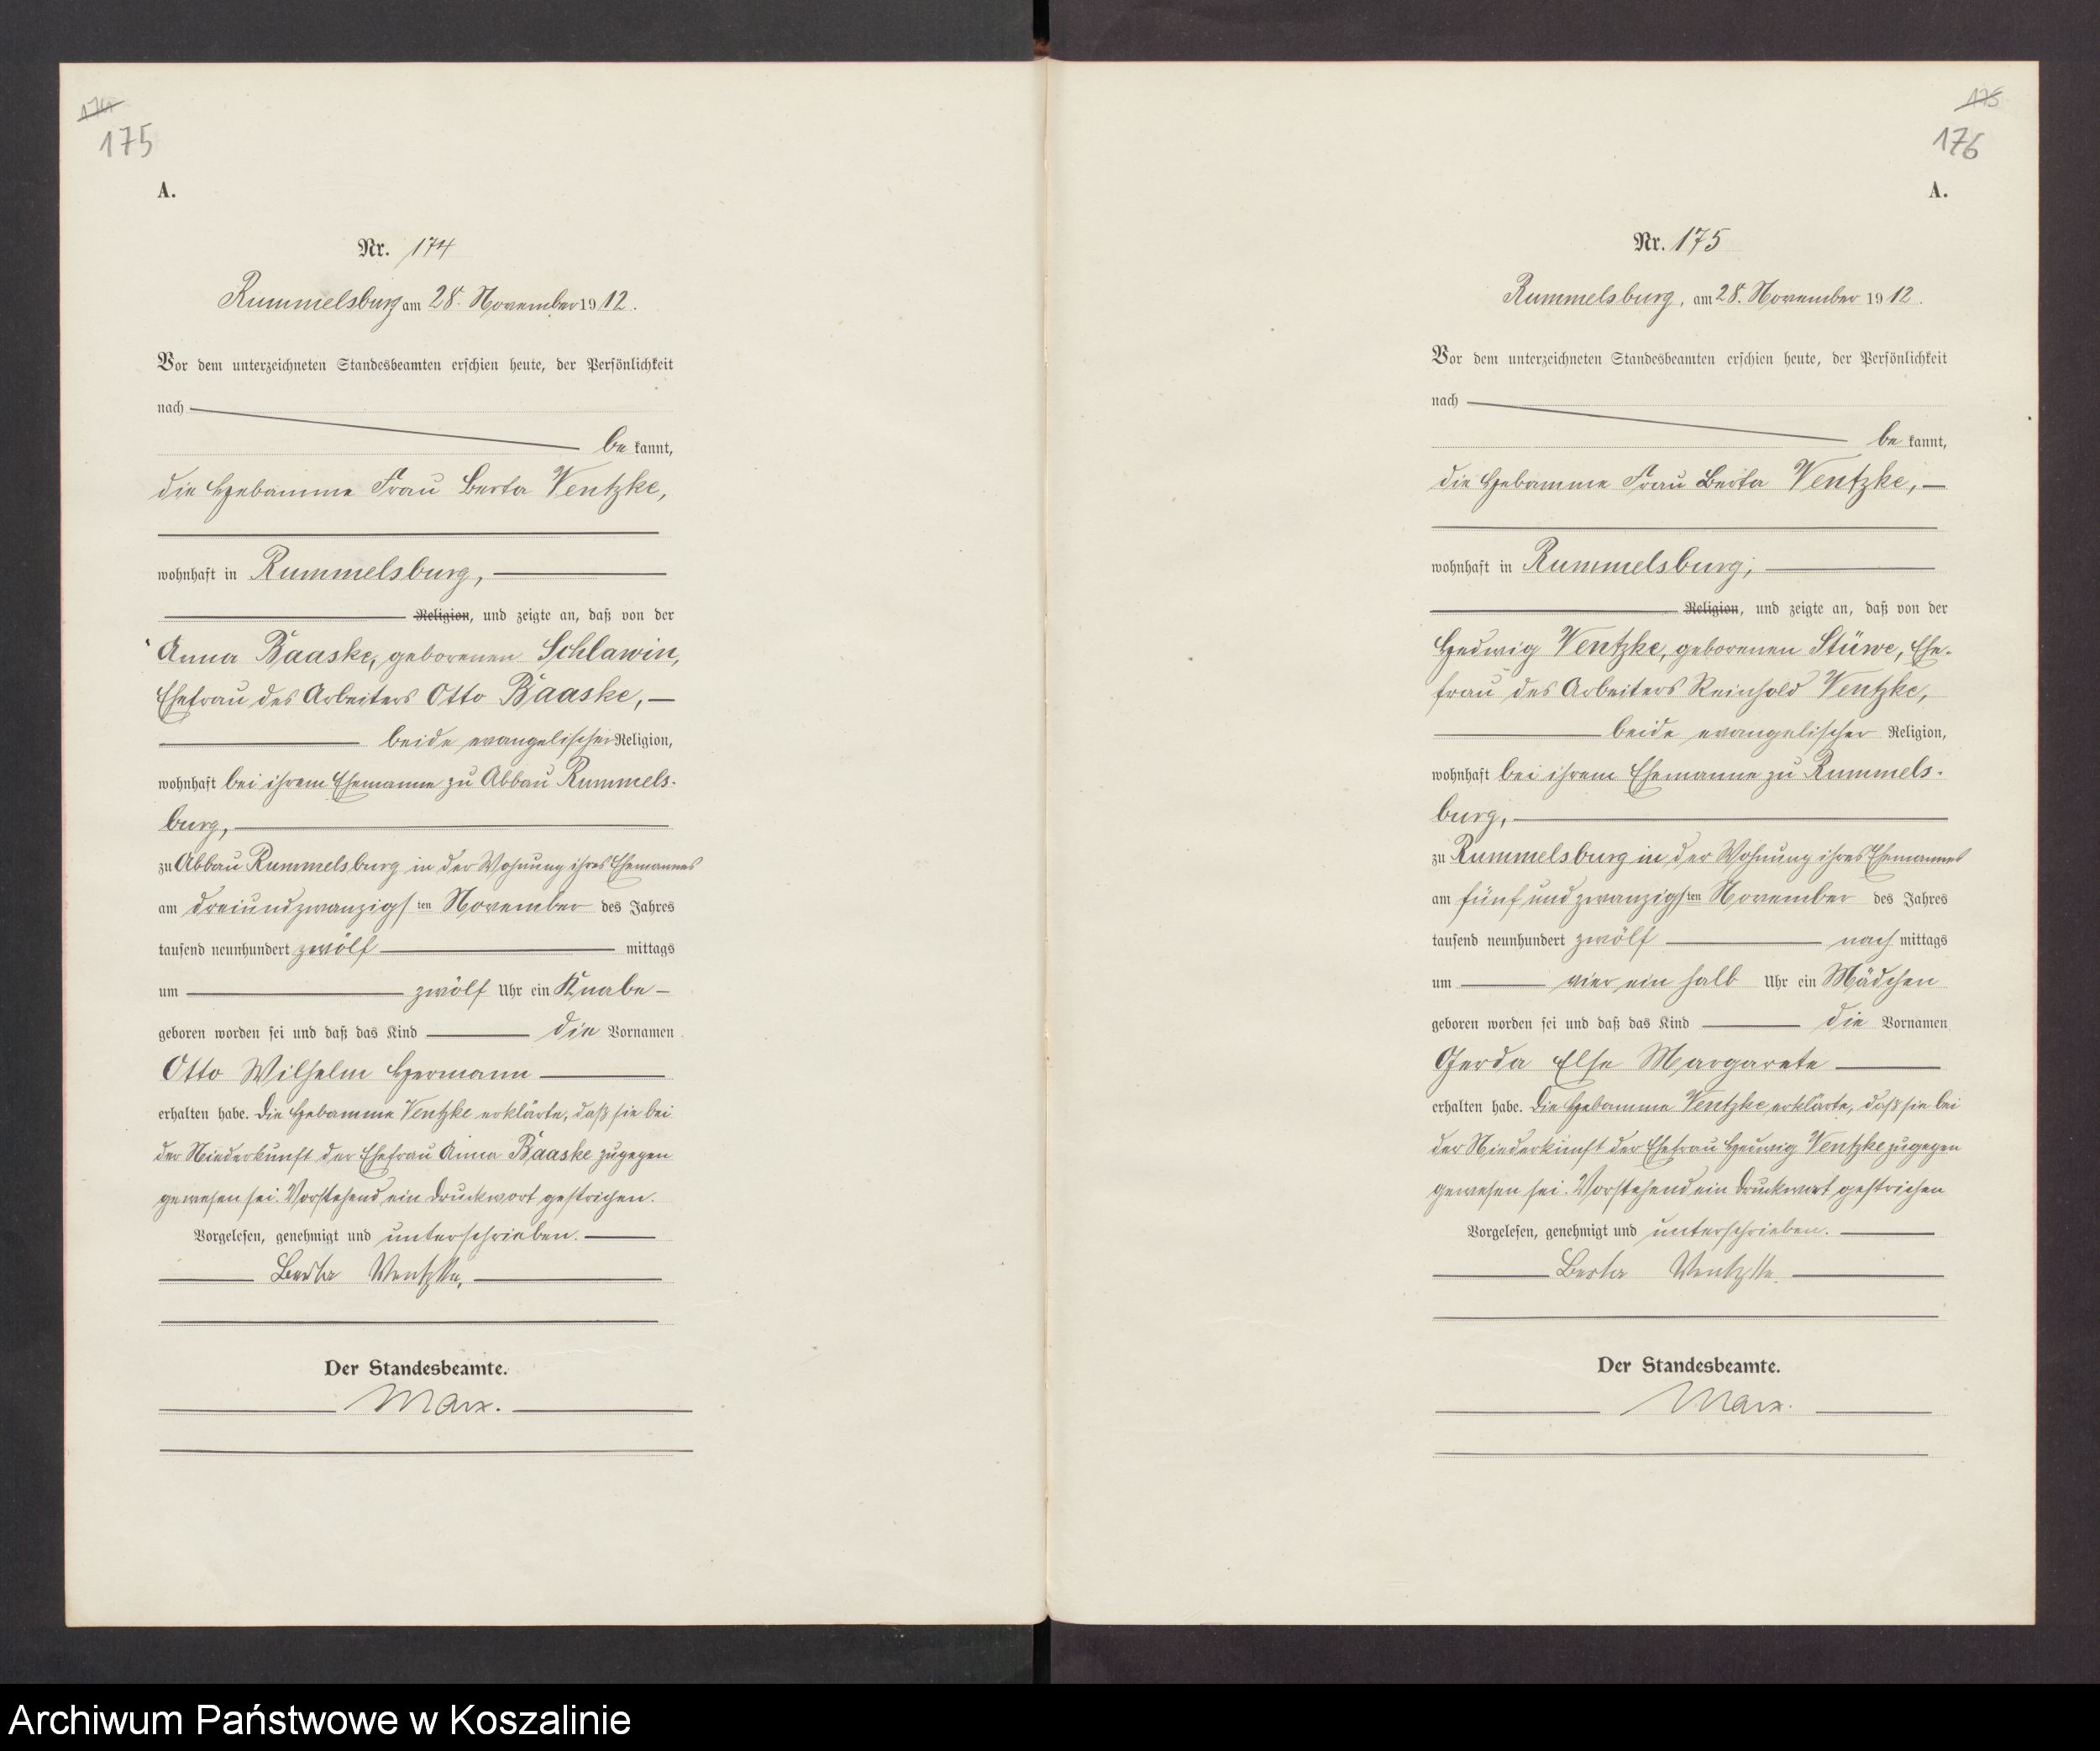 174
175
A.
Nr. 174
Rummelsburg am 28. November 1912.
Vor dem unterzeichneten Standesbeamten erschien heute, der Persönlichkeit
nach
be kannt,
die Hebamme Frau Berta Ventzke,
wohnhaft in Rummelsburg,
Religion, und zeigte an, daß von der
Anna Baaske, geborenen Schlawin,
Ehefrau des Arbeiters Otto Baaske,
beide evangelischer Religion,
wohnhaft bei ihrem Ehemanne zu Abbau Rummels-
burg,
zu Abbau Rummelsburg in der Wohnung ihres Ehemannes
am dreiundzwanzigsten November des Jahres
tausend neunhundert zwölf mittags
um zwölf Uhr ein Knabe
geboren worden sei und daß das Kind die Vornamen
Otto Wilhelm Hermann
erhalten habe. Die Hebamme Ventzke erklärte, daß sie bei
der Niederkunft der Ehefrau Anna Baaske zugegen
gewesen sei. Vorstehend ein Druckwort gestrichen.
Vorgelesen, genehmigt und unterschrieben.
Berta Ventzke.
Der Standesbeamte.
Marx.
175
176
A.
Nr. 175
Rummelsburg, am 28. November 1912.
Vor dem unterzeichneten Standesbeamten erschien heute, der Persönlichkeit
nach
be kannt,
die Hebamme Frau Berta Ventzke,
wohnhaft in Rummelsburg,
Religion, und zeigte an, daß von der
Hedwig Ventzke, geborenen Stüwe, Ehe-
frau des Arbeiters Reinhold Ventzke,
beide evangelischer Religion,
wohnhaft bei ihrem Ehemanne zu Rummels-
burg,
zu Rummelsburg in der Wohnung ihres Ehemannes
am fünfundzwanzigsten November des Jahres
tausend neunhundert zwölf nach mittags
um vier ein halb Uhr ein Mädchen
geboren worden sei und daß das Kind die Vornamen
Gerda Else Margarete
erhalten habe. Die Hebamme Ventzke erklärte, daß sie bei
der Niederkunft der Ehefrau Hedwig Ventzke zugegen
gewesen sei. Vorstehend ein Druckwort gestrichen
Vorgelesen, genehmigt und unterschrieben.
Berta Ventzke.
Der Standesbeamte.
Marx.
Archiwum Państwowe w Koszalinie